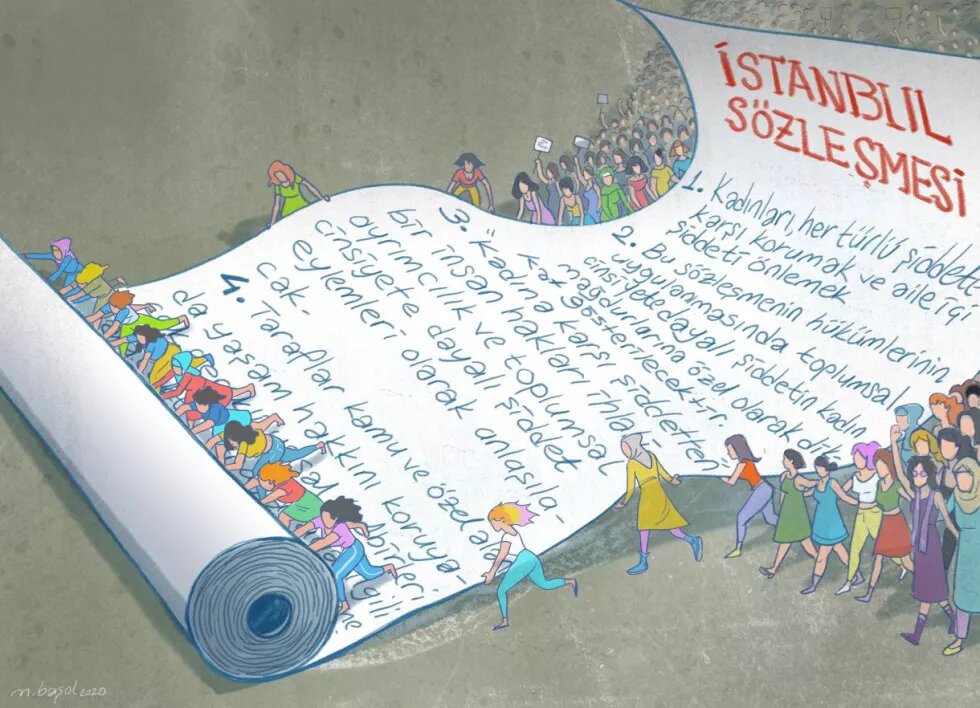 İSTANBUL
SÖZLEŞMESİ
1. Kadınları, her türlü şiddete
karşı korumak ve aile içi
şiddeti önlemek
2. Bu sözleşmenin hükümlerinin
uygulanmasında toplumsal
cinsiyete dayalı şiddetin kadın
mağdurlarına özel olarak dik
kat gösterilecektir.
3. "Kadına karşı şiddetten
bir insan hakları ihla
ayrımcılık ve toplumsal
cinsiyete dayalı şiddet
eylemleri olarak anlaşıla-
cak.
4. Taraflar kamu ve özel
da yaşam hakkını koruya-
n.başol 2020